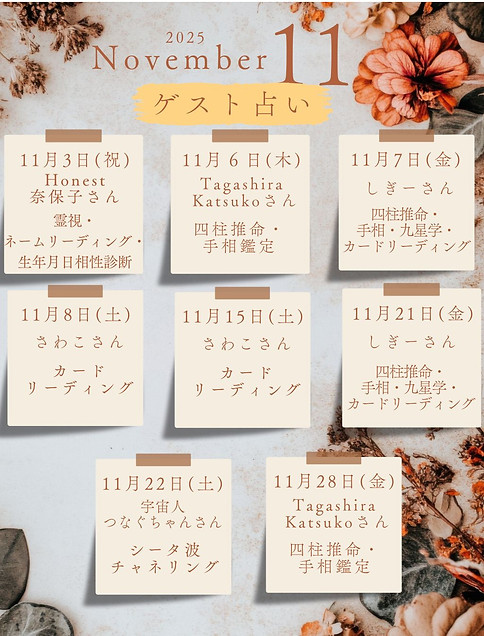 2025
November 11
ゲスト占い
11月3日(祝)
Honest
奈保子さん
霊視・
ネームリーディング・
生年月日相性診断
11月6日(木)
Tagashira
Katsukoさん
四柱推命・
手相鑑定
11月7日(金)
しぎーさん
四柱推命・
手相・九星学・
カードリーディング
11月8日(土)
さわこさん
カード
リーディング
11月15日(土)
さわこさん
カード
リーディング
11月21日(金)
しぎーさん
四柱推命・
手相・九星学・
カードリーディング
11月22日(土)
宇宙人
つなぐちゃんさん
シータ波
チャネリング
11月28日(金)
Tagashira
Katsukoさん
四柱推命・
手相鑑定